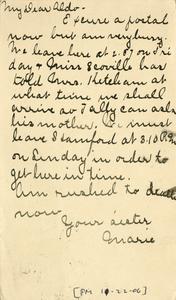 My Dear Aldo -
Excuse a postal
now but am very busy.
We leave here at 2.07 on Fri
day & Miss Scoville has
told Mrs. Ketcham at
what time we shall
arrive so Tally can ask
his mother. We must
leave Stamford at 3.10 P.M.
on Sunday in order to
get here in time.
Am rushed to death
now
Your sister
Marie
[PM 10-22-06]